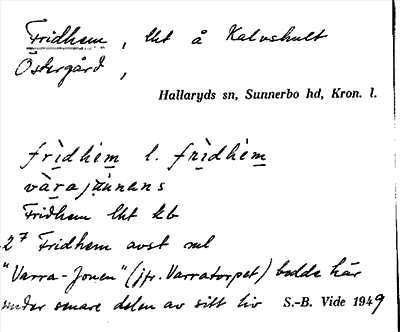 Fridhem, lht å Kalvshult
Östergård,
Hallaryds sn, Sunnerbo hd, Kron. l.
frìdhèm l. frìdhèm
vàrajunnans
Fridhem lht kb
27 Fridhem avst ml
"Varra-Jonen" (jfr. Varratorpet) bodde här
under senare delen av sitt liv S.-B. Vide 1949